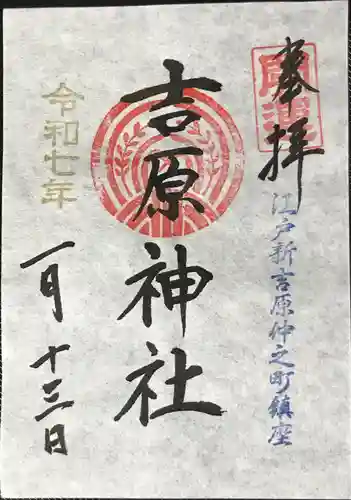 奉拝
開運
江戸新吉原仲之町鎮座
吉原神社
令和七年
一月十三日